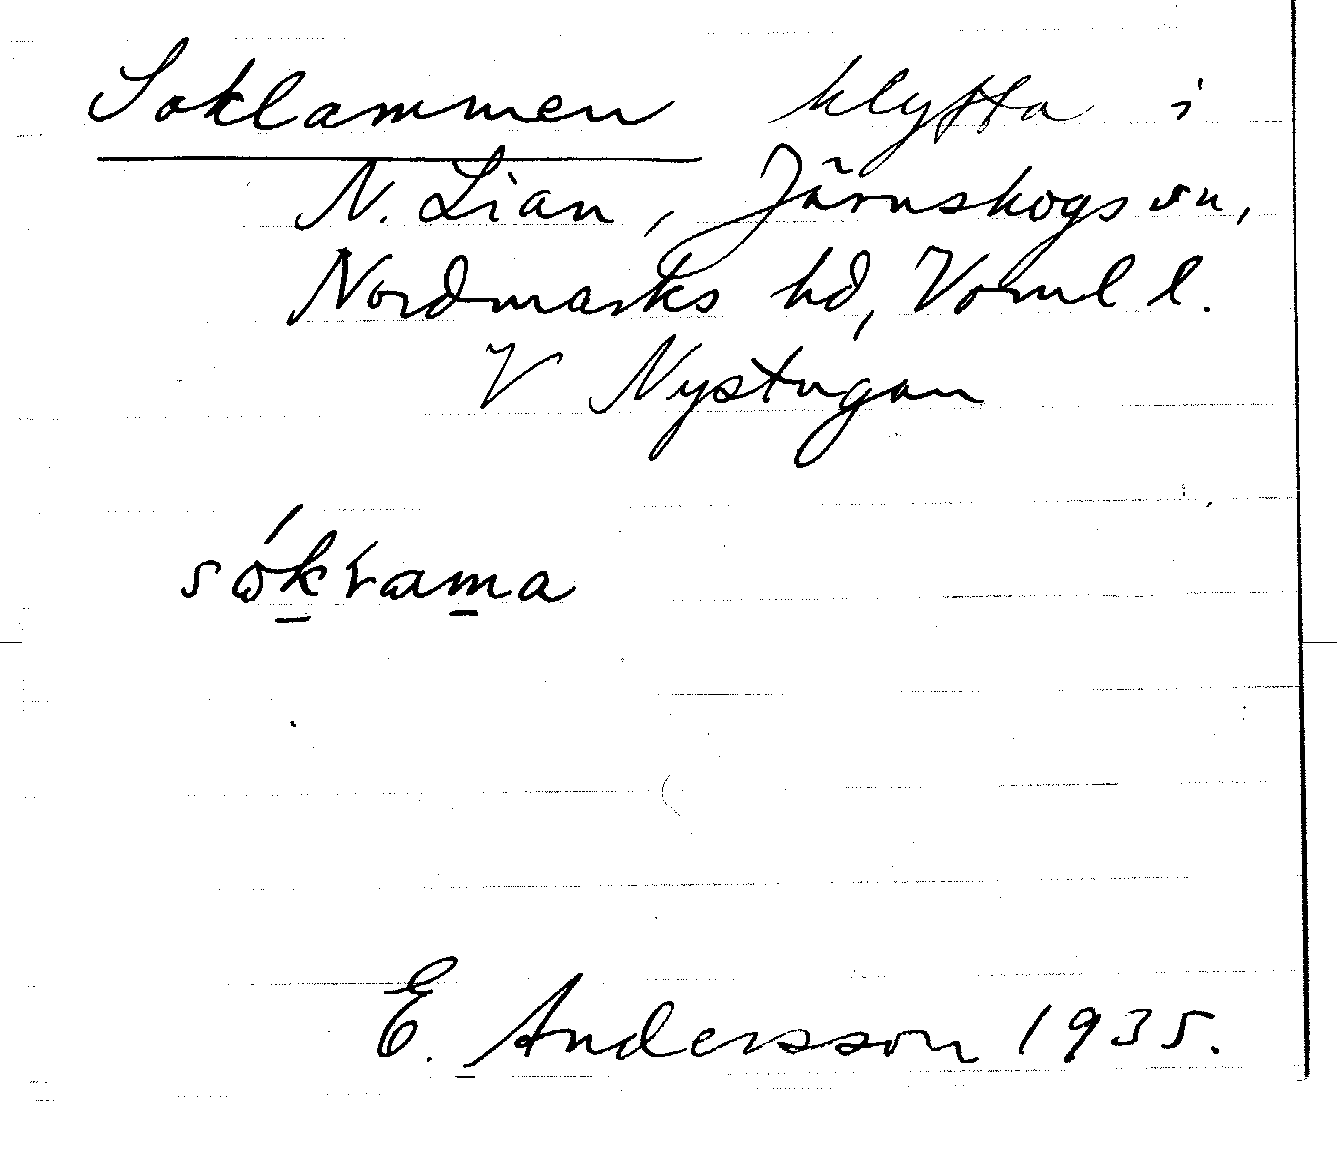 Soklammen klyfta i
N. Lian, Järnskogs sn,
Nordmarks hd, Värml l.
V Nystugan
E. Andersson 1935.